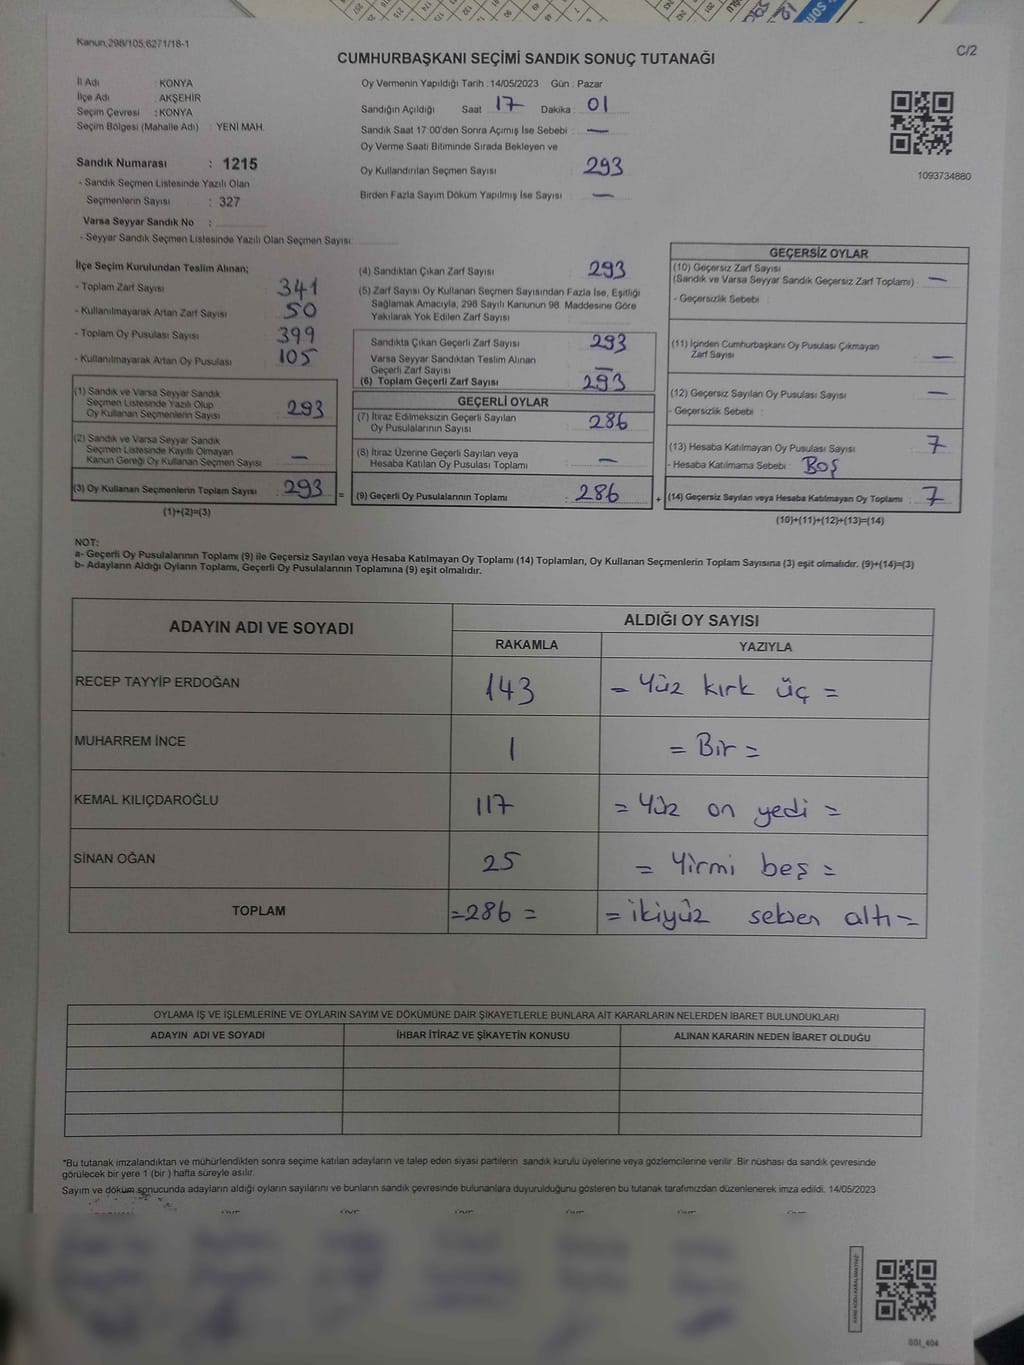 Kanun,298/105;6271/18-1
C/2
CUMHURBAŞKANI SEÇİMİ SANDIK SONUÇ TUTANAĞI
İl Adı : KONYA
İlçe Adı : AKŞEHİR
Seçim Çevresi : KONYA
Seçim Bölgesi (Mahalle Adı) : YENİ MAH.
Sandık Numarası : 1215
- Sandık Seçmen Listesinde Yazılı Olan
Seçmenlerin Sayısı : 327
Varsa Seyyar Sandık No :
- Seyyar Sandık Seçmen Listesinde Yazılı Olan Seçmen Sayısı:
Oy Vermenin Yapıldığı Tarih : 14/05/2023 Gün : Pazar
Sandığın Açıldığı Saat : 17 Dakika : 01
Sandık Saat 17:00'den Sonra Açımış İse Sebebi : —
Oy Verme Saati Bitiminde Sırada Bekleyen ve
Oy Kullandırılan Seçmen Sayısı : 293
Birden Fazla Sayım Döküm Yapılmış İse Sayısı : —
1093734880
İlçe Seçim Kurulundan Teslim Alınan;
- Toplam Zarf Sayısı : 341
- Kullanılmayarak Artan Zarf Sayısı : 50
- Toplam Oy Pusulası Sayısı : 399
- Kullanılmayarak Artan Oy Pusulası : 105
(1) Sandık ve Varsa Seyyar Sandık
Seçmen Listesinde Yazılı Olup
Oy Kullanan Seçmenlerin Sayısı : 293
(2) Sandık ve Varsa Seyyar Sandık
Seçmen Listesinde Kayıtlı Olmayan
Kanun Gereği Oy Kullanan Seçmen Sayısı : —
(3) Oy Kullanan Seçmenlerin Toplam Sayısı : 293 =
(1)+(2)=(3)
(4) Sandıktan Çıkan Zarf Sayısı : 293
(5) Zarf Sayısı Oy Kullanan Seçmen Sayısından Fazla İse, Eşitliği
Sağlamak Amacıyla, 298 Sayılı Kanunun 98. Maddesine Göre
Yakılarak Yok Edilen Zarf Sayısı :
Sandıkta Çıkan Geçerli Zarf Sayısı : 293
Varsa Seyyar Sandıktan Teslim Alınan
Geçerli Zarf Sayısı : —
(6) Toplam Geçerli Zarf Sayısı : 293
GEÇERLİ OYLAR
(7) İtiraz Edilmeksizin Geçerli Sayılan
Oy Pusulalarının Sayısı : 286
(8) İtiraz Üzerine Geçerli Sayılan veya
Hesaba Katılan Oy Pusulası Toplamı : —
(9) Geçerli Oy Pusulalarının Toplamı : 286 +
GEÇERSİZ OYLAR
(10) Geçersiz Zarf Sayısı
(Sandık ve Varsa Seyyar Sandık Geçersiz Zarf Toplamı) : —
- Geçersizlik Sebebi :
(11) İçinden Cumhurbaşkanı Oy Pusulası Çıkmayan
Zarf Sayısı : —
(12) Geçersiz Sayılan Oy Pusulası Sayısı : —
- Geçersizlik Sebebi :
(13) Hesaba Katılmayan Oy Pusulası Sayısı : 7
- Hesaba Katılmama Sebebi : BOŞ
(14) Geçersiz Sayılan veya Hesaba Katılmayan Oy Toplamı : 7
(10)+(11)+(12)+(13)=(14)
NOT:
a- Geçerli Oy Pusulalarının Toplamı (9) ile Geçersiz Sayılan veya Hesaba Katılmayan Oy Toplamı (14) Toplamları, Oy Kullanan Seçmenlerin Toplam Sayısına (3) eşit olmalıdır. (9)+(14)=(3)
b- Adayların Aldığı Oyların Toplamı, Geçerli Oy Pusulalarının Toplamına (9) eşit olmalıdır.
ADAYIN ADI VE SOYADI
ALDIĞI OY SAYISI
RAKAMLA YAZIYLA
RECEP TAYYİP ERDOĞAN 143 = Yüz kırk üç =
MUHARREM İNCE 1 = Bir =
KEMAL KILIÇDAROĞLU 117 = Yüz on yedi =
SİNAN OĞAN 25 = Yirmi beş =
TOPLAM =286= = ikiyüz seksen altı =
OYLAMA İŞ VE İŞLEMLERİNE VE OYLARIN SAYIM VE DÖKÜMÜNE DAİR ŞİKAYETLERLE BUNLARA AİT KARARLARIN NELERDEN İBARET BULUNDUKLARI
ADAYIN ADI VE SOYADI İHBAR İTİRAZ VE ŞİKAYETİN KONUSU ALINAN KARARIN NEDEN İBARET OLDUĞU
*Bu tutanak imzalandıktan ve mühürlendikten sonra seçime katılan adayların ve talep eden siyasi partilerin sandık kurulu üyelerine veya gözlemcilerine verilir. Bir nüshası da sandık çevresinde
görülecek bir yere 1 (bir ) hafta süreyle asılır.
Sayım ve döküm sonucunda adayların aldığı oyların sayılarını ve bunların sandık çevresinde bulunanlara duyurulduğunu gösteren bu tutanak tarafımızdan düzenlenerek imza edildi. 14/05/2023